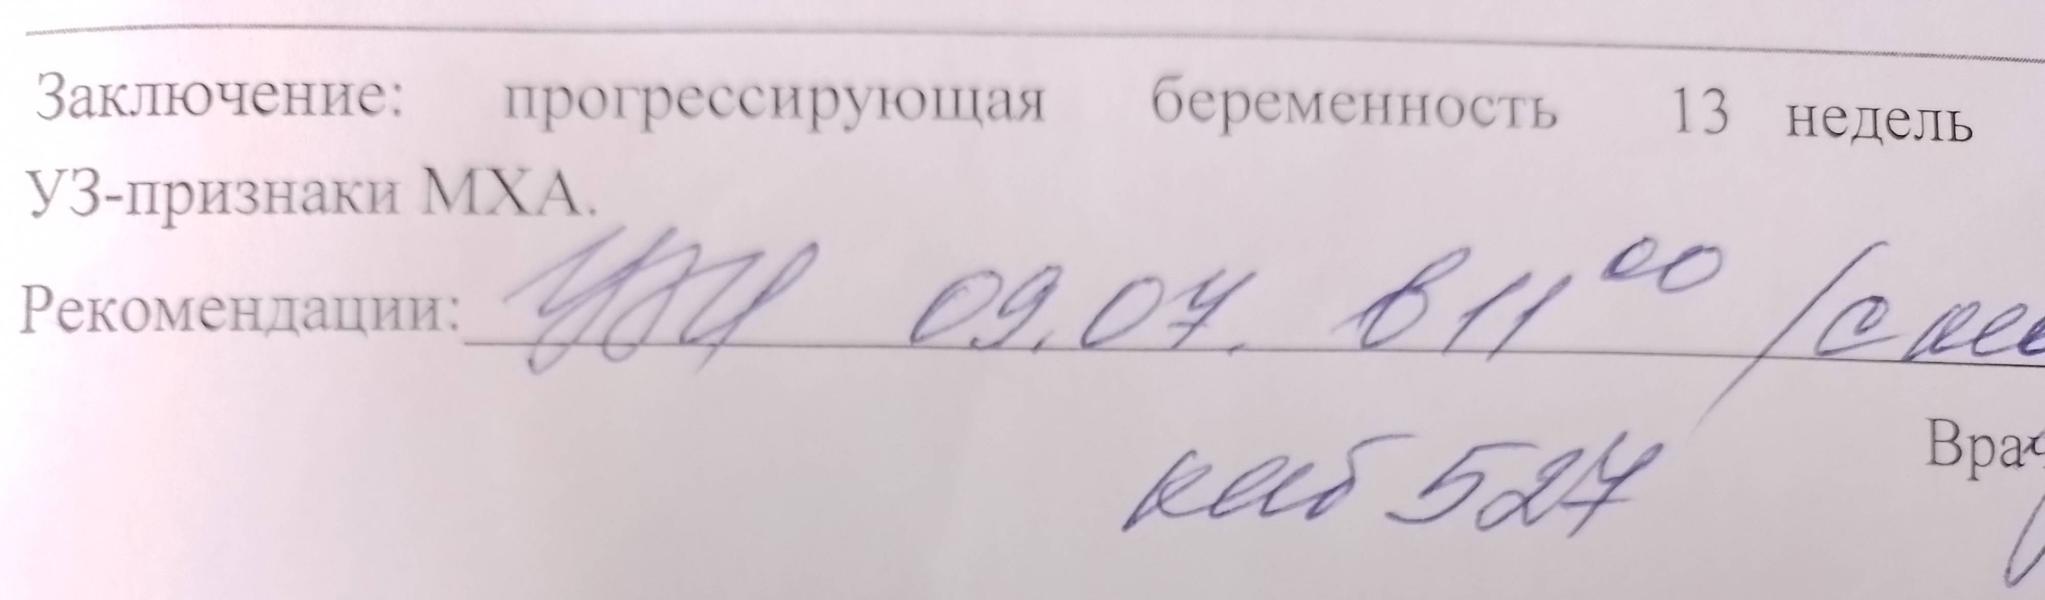 Заключение: прогрессирующая беременность 13 недель
УЗ-признаки МХА.
Рекомендации: 09.07. в 11 00 /с
каб 527
Врач